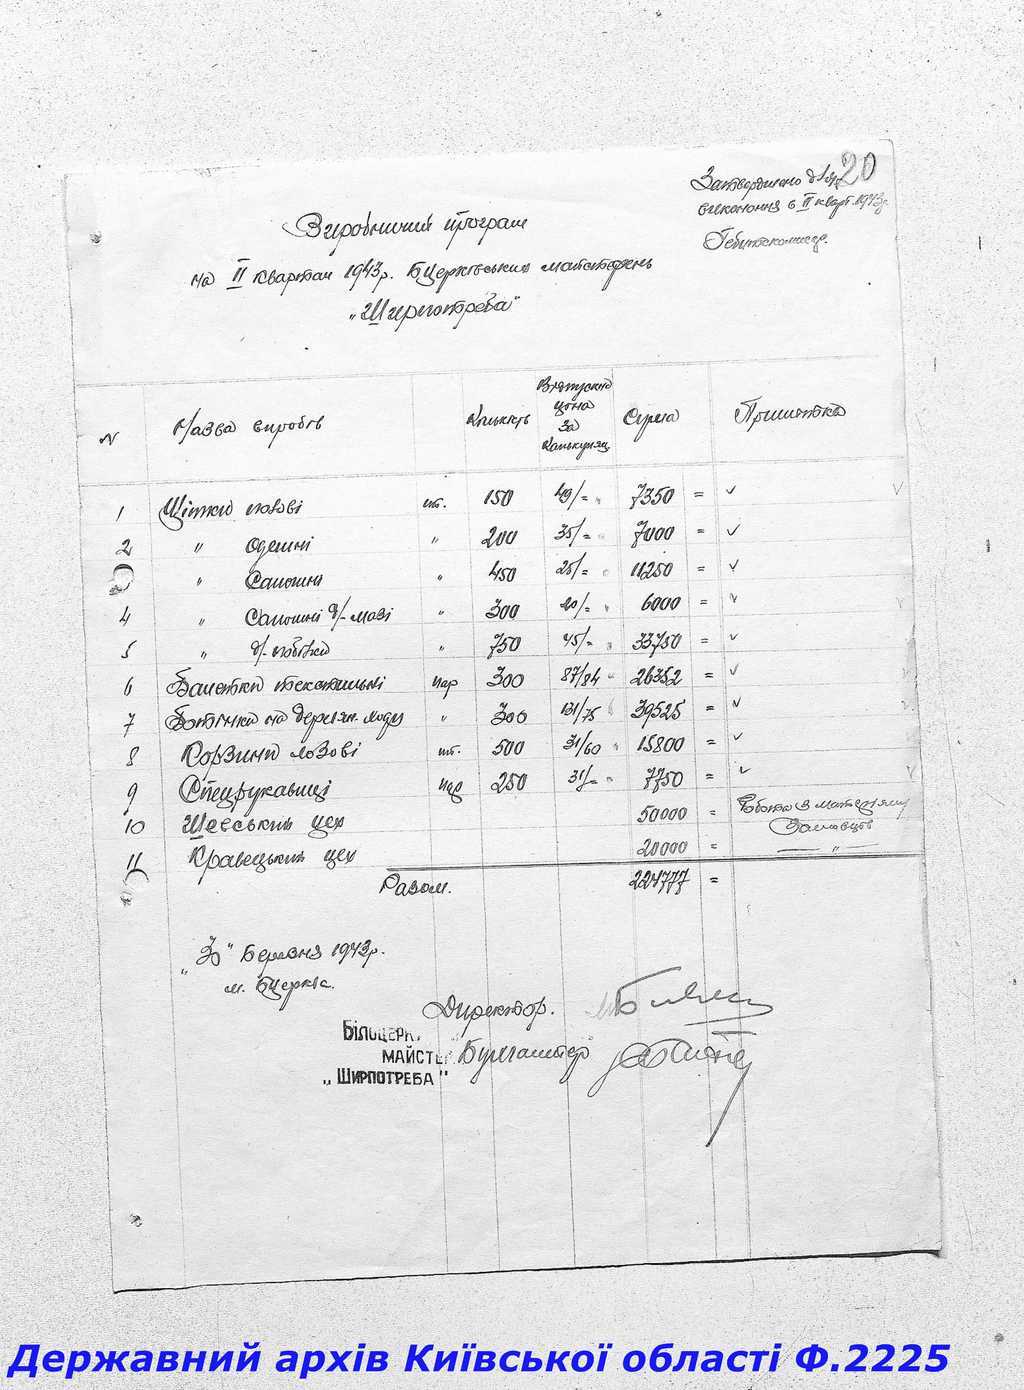 20
Затверджено для
виконання в II кварт. 1943р.
Гебітскомісар.
Виробничий програм
на II квартал 1943р. Бцерківських майстерень
„Ширпотреба"
N Назва виробів Кількість Відпускна ціна за калькуляц. Сума Примітка
1 Щітки шт. 150 49/= " 7350 = ✓
2 " Одежні " 200 35/= " 7000 = ✓
3 " Сапожні " 450 25/= " 11250 = ✓
4 " Сапожні д/-мазі " 300 20/= " 6000 = ✓
5 " д/-побілки " 750 45/= " 33750 = ✓
6 Балетки текстильні пар 300 87/84 " 26352 = ✓
7 Ботінки на дерев'ян. " 300 131/75 " 39525 = ✓
8 Корзини лозові шт. 500 31/60 " 15800 = ✓
9 Спецрукавиці пар 250 31/= " 7750 = ✓
10 Шевський цех 50000 = Робота з матеріялу Замовців
11 Кравецький цех 20000 = — " —
Разом. 224777 =
„3" Березня 1943р.
м. Бцерква.
Директор.
Білоцерк
майсте Бухгалтер
„Ширпотреба"
Державний архів Київської області Ф.2225